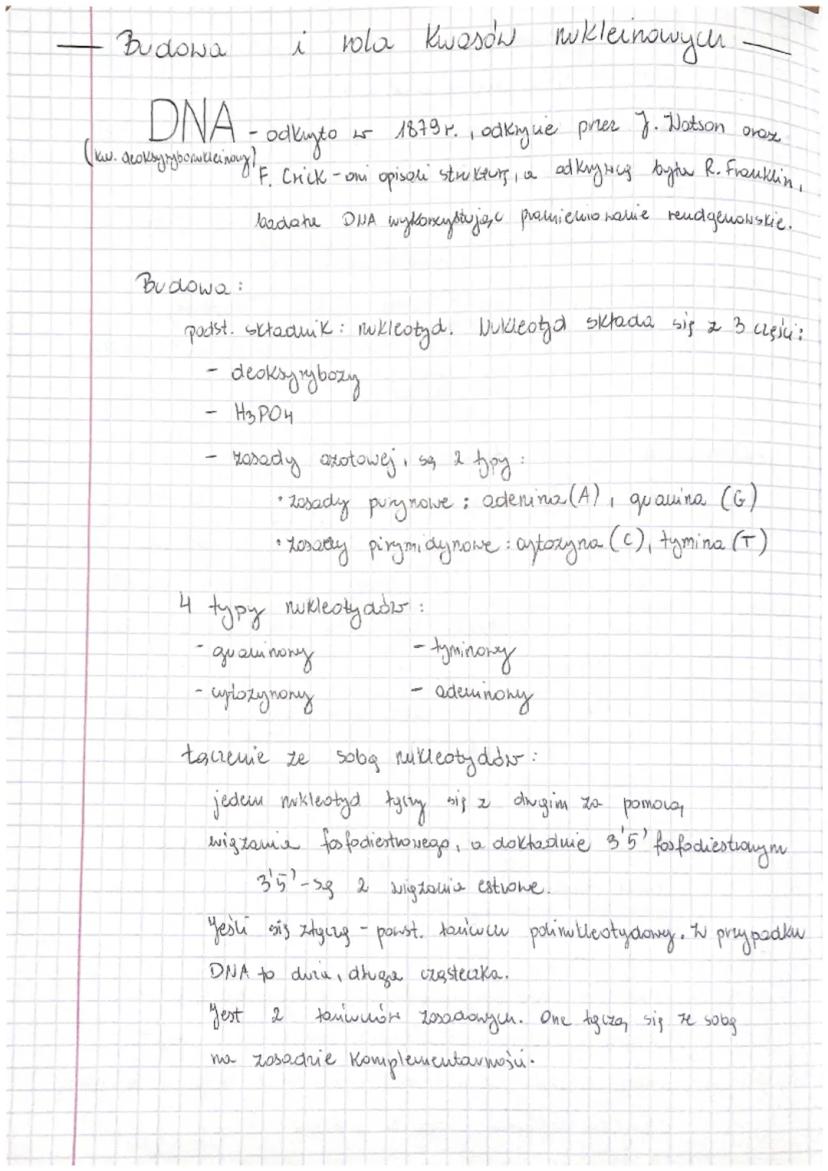 Budowa i rola kwasów nukleinowych
DNA - odkryto w 1879r., odkrycie przez J. Watson oraz
(kw. deoksyrybonukleinowy) F. Crick - oni opisali strukturę, a odkrywcą była R. Franklin,
badała DNA wykorzystując promieniowanie rendgenowskie.
Budowa:
podst. składnik: nukleotyd. Nukleotyd składa się z 3 części:
- deoksyrybozy
- H3PO4
- zasady azotowej, są 2 typy:
• zasady purynowe: adenina (A), guanina (G)
• zasady pirymidynowe: cytozyna (C), tymina (T)
4 typy nukleotydów:
- guaninowy - tyminowy
- cytozynowy - adeninowy
Łączenie ze sobą nukleotydów:
jeden nukleotyd łączy się z drugim za pomocą
wiązania fosfodiestrowego, a dokładnie 3'5' fosfodiestrowym
3'5' - są 2 wiązania estrowe.
Jeśli się złączą - powst. łańcuch polinukleotydowy. W przypadku
DNA to duża, długa cząsteczka.
Jest 2 łańcuchów zasadowych. One łączą się ze sobą
na zasadzie komplementarności.